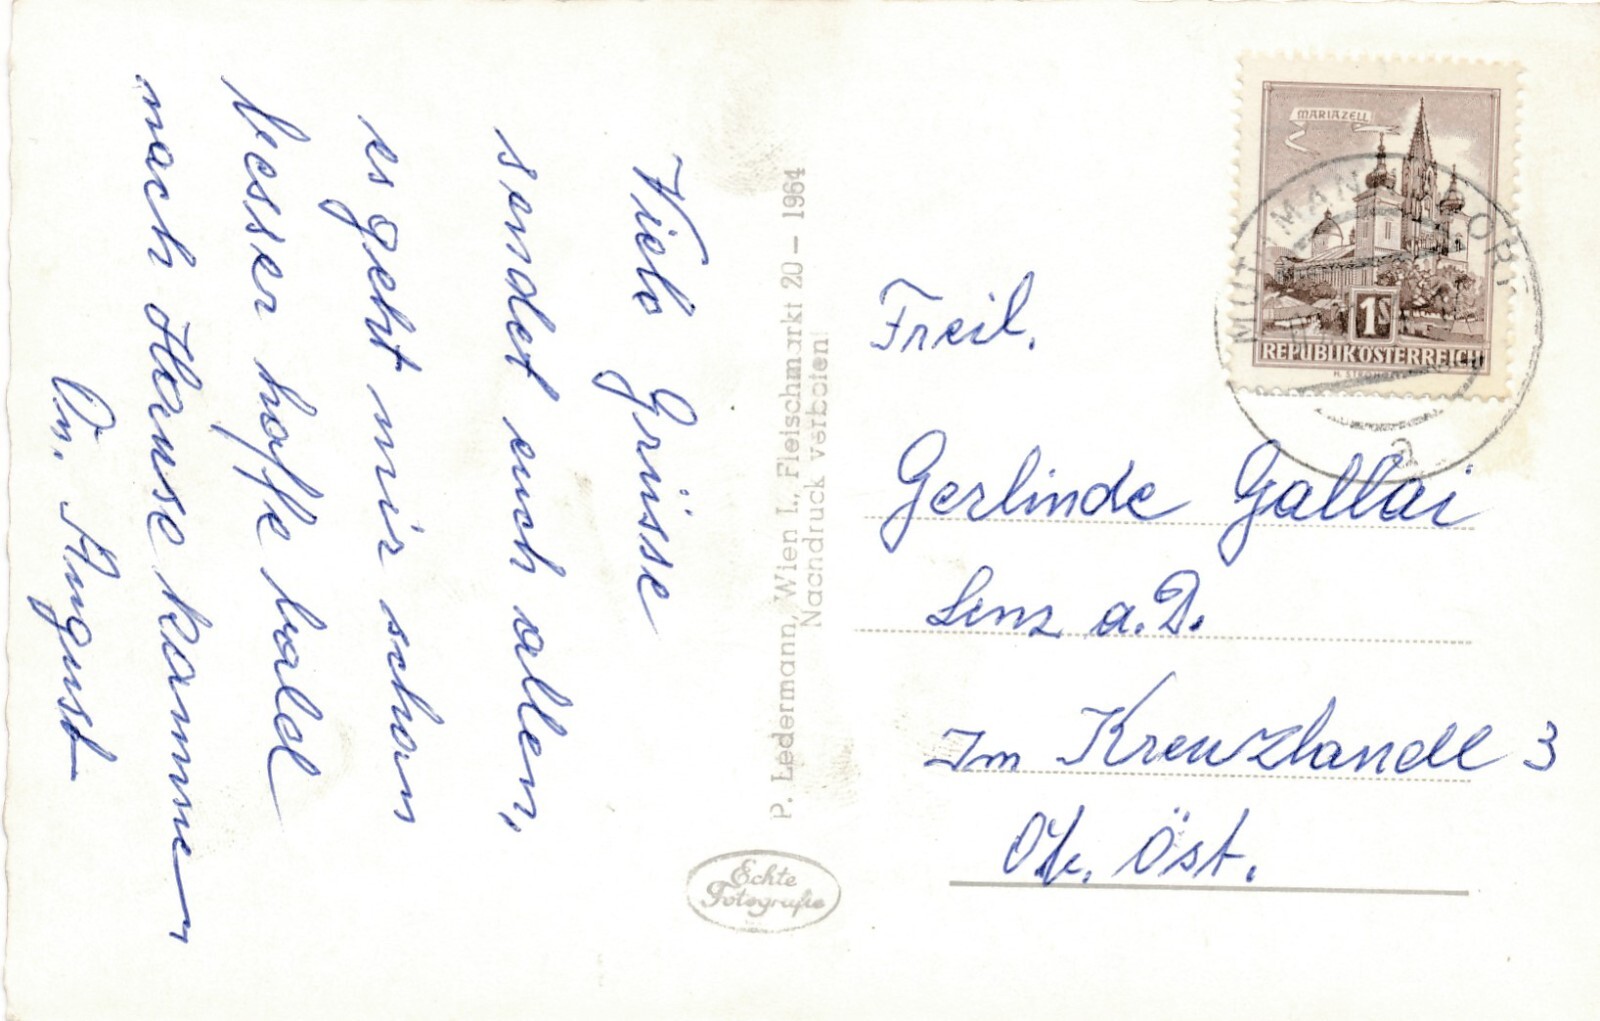 Viele Grüsse
sendet euch allen,
es geht mir schon
besser hoffe bald
nach Hause kommen
On. August
P. Ledermann, Wien I., Fleischmarkt 20 – 1964
Nachdruck verboten!
Echte
Fotografie
MARIAZELL
1S
REPUBLIK ÖSTERREICH
a
Freil.
Gerlinde Gallai
Lenz a. D.
Im Kreuzlandl 3
Ob. Öst.